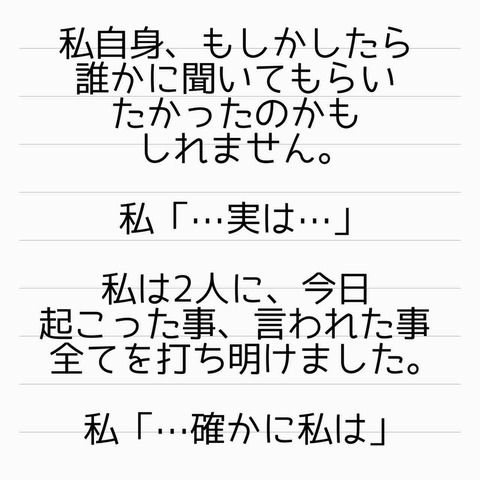 私自身、もしかしたら
誰かに聞いてもらい
たかったのかも
しれません。
私「…実は…」
私は2人に、今日
起こった事、言われた事
全てを打ち明けました。
私「…確かに私は」